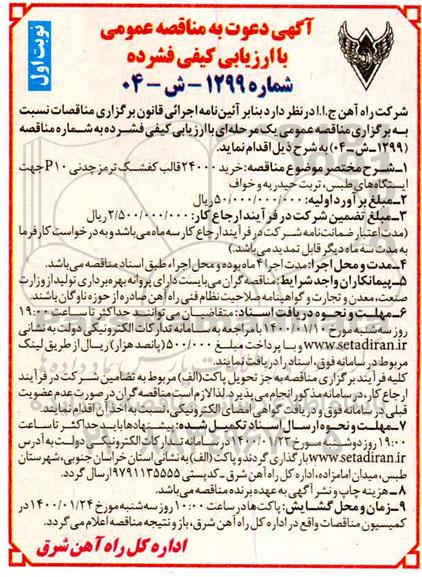 نوبت اول
آگهی دعوت به مناقصه عمومی
با ارزیابی کیفی فشرده
شماره ۱۲۹۹-ش-۰۴
شرکت راه آهن ج.ا.ا در نظر دارد بنابر آئین نامه اجرائی قانون برگزاری مناقصات نسبت
به برگزاری مناقصه عمومی یک مرحله‌ای با ارزیابی کیفی فشرده به شماره مناقصه
(۱۲۹۹-ش-۰۴) به شرح ذیل اقدام نماید.
۱-شرح مختصر موضوع مناقصه: خرید ۲۴۰۰۰ قالب کفشک ترمز چدنی P۱۰ جهت
ایستگاه‌های طبس، تربت حیدریه و خواف
۲-مبلغ برآورد اولیه: ۵۰/۰۰۰/۰۰۰/۰۰۰ ریال
۳-مبلغ تضمین شرکت در فرآیند ارجاع کار: ۲/۵۰۰/۰۰۰/۰۰۰ ریال
(مدت اعتبار ضمانت‌نامه شرکت در فرآیند ارجاع کار سه ماه می‌باشد و به درخواست کارفرما
به مدت سه ماه دیگر قابل تمدید می‌باشد.)
۴-مدت و محل اجرا: مدت اجرا ۴ ماه بوده و محل اجراء طبق اسناد مناقصه می‌باشد.
۵-پیمانکاران واجد شرایط: مناقصه گران می‌بایست دارای پروانه بهره‌برداری تولید از وزارت
صنعت، معدن و تجارت و گواهینامه صلاحیت نظام فنی راه آهن صادره از حوزه ناوگان باشند.
۶-مهلت و نحوه دریافت اسناد: متقاضیان می‌توانند حداکثر تا ساعت ۱۹:۰۰
روز سه‌شنبه مورخ ۱۴۰۰/۰۱/۱۰ با مراجعه به سامانه تدارکات الکترونیکی دولت به نشانی
www.setadiran.ir و با پرداخت مبلغ ۵۰۰/۰۰۰ (پانصد هزار) ریال از طریق لینک
مربوط در سامانه فوق، اسناد را دریافت نمایند.
کلیه فرآیند برگزاری مناقصه به جز تحویل پاکت (الف) مربوط به تضامین شرکت در فرآیند
ارجاع کار، در سامانه مذکور انجام می‌پذیرد. لذا لازم است مناقصه گران در صورت عدم عضویت
قبلی در سامانه فوق و دریافت گواهی امضای الکترونیکی، نسبت به اخذ آن اقدام نمایند.
۷-مهلت و نحوه ارسال اسناد تکمیل شده: پیشنهادها باید حداکثر تا ساعت
۱۹:۰۰ روز دوشنبه مورخ ۱۴۰۰/۰۱/۲۳ در سامانه تدارکات الکترونیکی دولت به آدرس
www.setadiran.ir بارگذاری گردند و پاکت (الف) به نشانی استان خراسان جنوبی، شهرستان
طبس، میدان امامزاده، اداره کل راه آهن شرق - کدپستی ۹۷۹۱۱۳۵۵۵۵ ارسال گردد.
۸-هزینه چاپ و نشر آگهی به عهده برنده مناقصه می‌باشد.
۹-زمان و محل گشایش: پاکت‌ها در ساعت ۱۰:۰۰ روز سه‌شنبه مورخ ۱۴۰۰/۰۱/۲۴ در
کمیسیون مناقصات واقع در اداره کل راه آهن شرق، باز و نتیجه مناقصه اعلام می گردد.
اداره کل راه آهن شرق